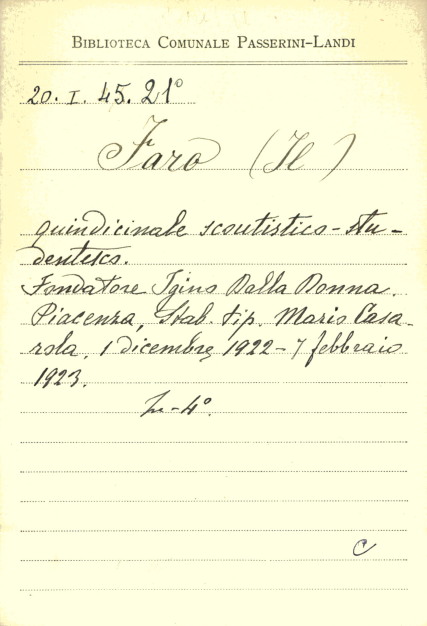 BIBLIOTECA COMUNALE PASSERINI-LANDI
20. I. 45. 21°
Faro (Il)
quindicinale scoutistico-stu-
dentesco.
Fondatore Igino Dalla Donna.
Piacenza, Stab. tip. Mario Casa-
rola, 1 dicembre 1922 - 7 febbraio
1923.
In-4°.
C